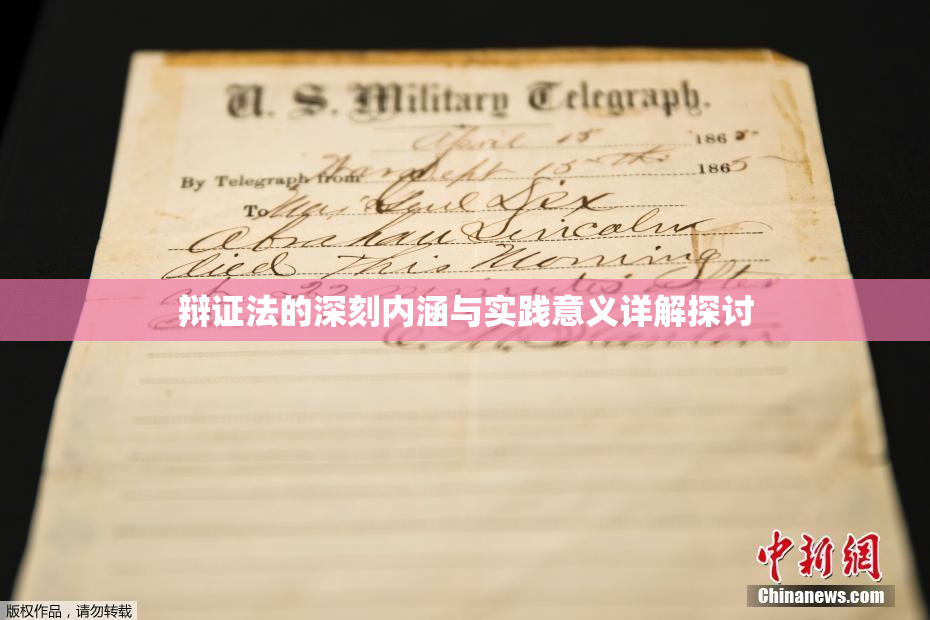 U. S. Military Telegraph.
April 15 1865
By Telegraph from War Dept 15th 1865
To Maj Genl Dix
Abraham Lincoln
died This Morning
at 22 minutes after
辩证法的深刻内涵与实践意义详解探讨
E. M. Stanton
中新网
Chinanews.com
版权作品，请勿转载